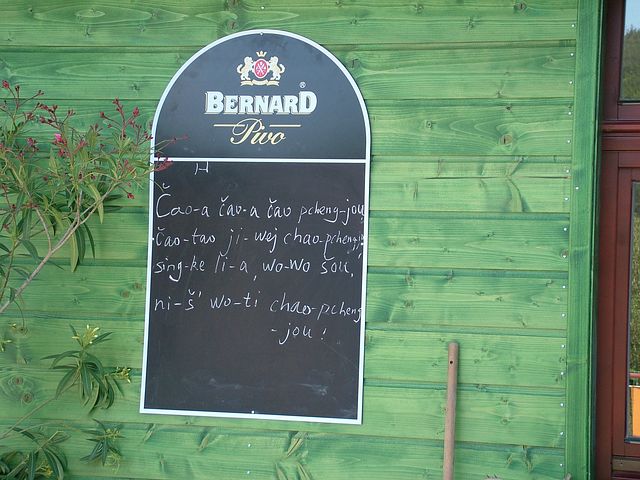 BERNARD®
Pivo
Čao-a čao-a čao pcheng-jou
čao-tao ji-wej chao-pcheng-j
sing-ke li-a, wo-wo šou,
ni-š' wo-ti chao-pcheng
-jou!